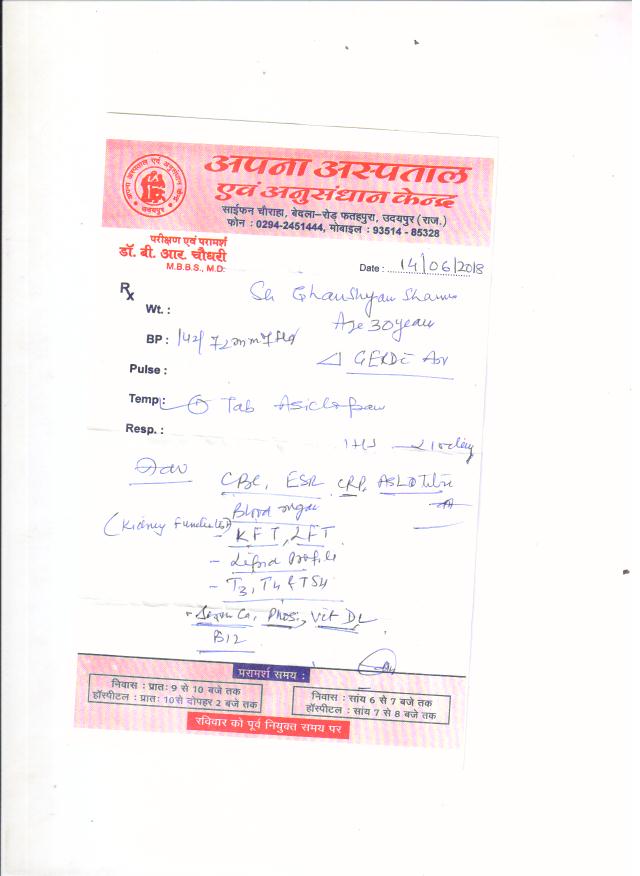 अपना अस्पताल
एवं अनुसंधान केन्द्र
साईफन चौराहा, बेदला-रोड़ फतहपुरा, उदयपुर (राज.)
फोन : 0294-2451444, मोबाइल : 93514 - 85328
अपना अस्पताल एवं अनुसंधान केन्द्र
उदयपुर
परीक्षण एवं परामर्श
डॉ. बी. आर. चौधरी
M.B.B.S., M.D.
Date : 14/06/2018
Rx
Wt. :
Age 30 year
BP : 142/72 mm of Hg
GERD
Pulse :
Temp : Tab
Resp. :
CBC, ESR, CRP, ASLO Titre
Blood sugar
(Kidney Function) KFT, LFT
- Lipid Profile
- T3, T4 & TSH
- Serum Ca, Phos., Vit D
B12
परामर्श समय :
निवास : प्रातः 9 से 10 बजे तक
हॉस्पीटल : प्रातः 10 से दोपहर 2 बजे तक
निवास : सांय 6 से 7 बजे तक
हॉस्पीटल : सांय 7 से 8 बजे तक
रविवार को पूर्व नियुक्त समय पर